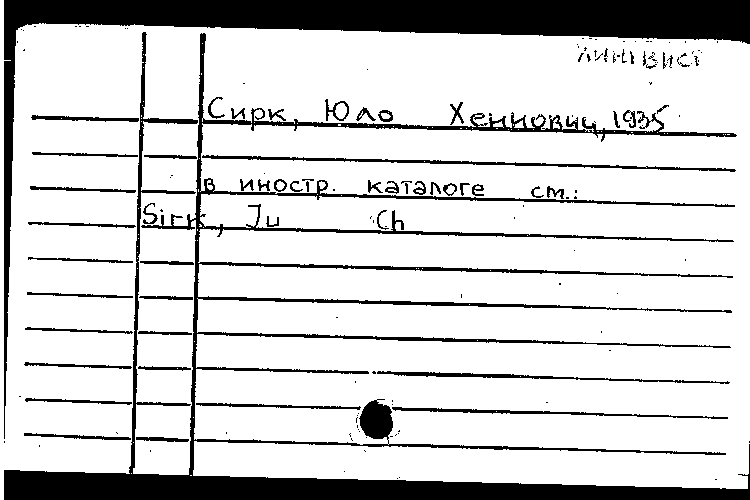 лингвист
Сирк, Юло Хеннович, 1935
в иностр. каталоге см.:
Sirk, Ju Ch